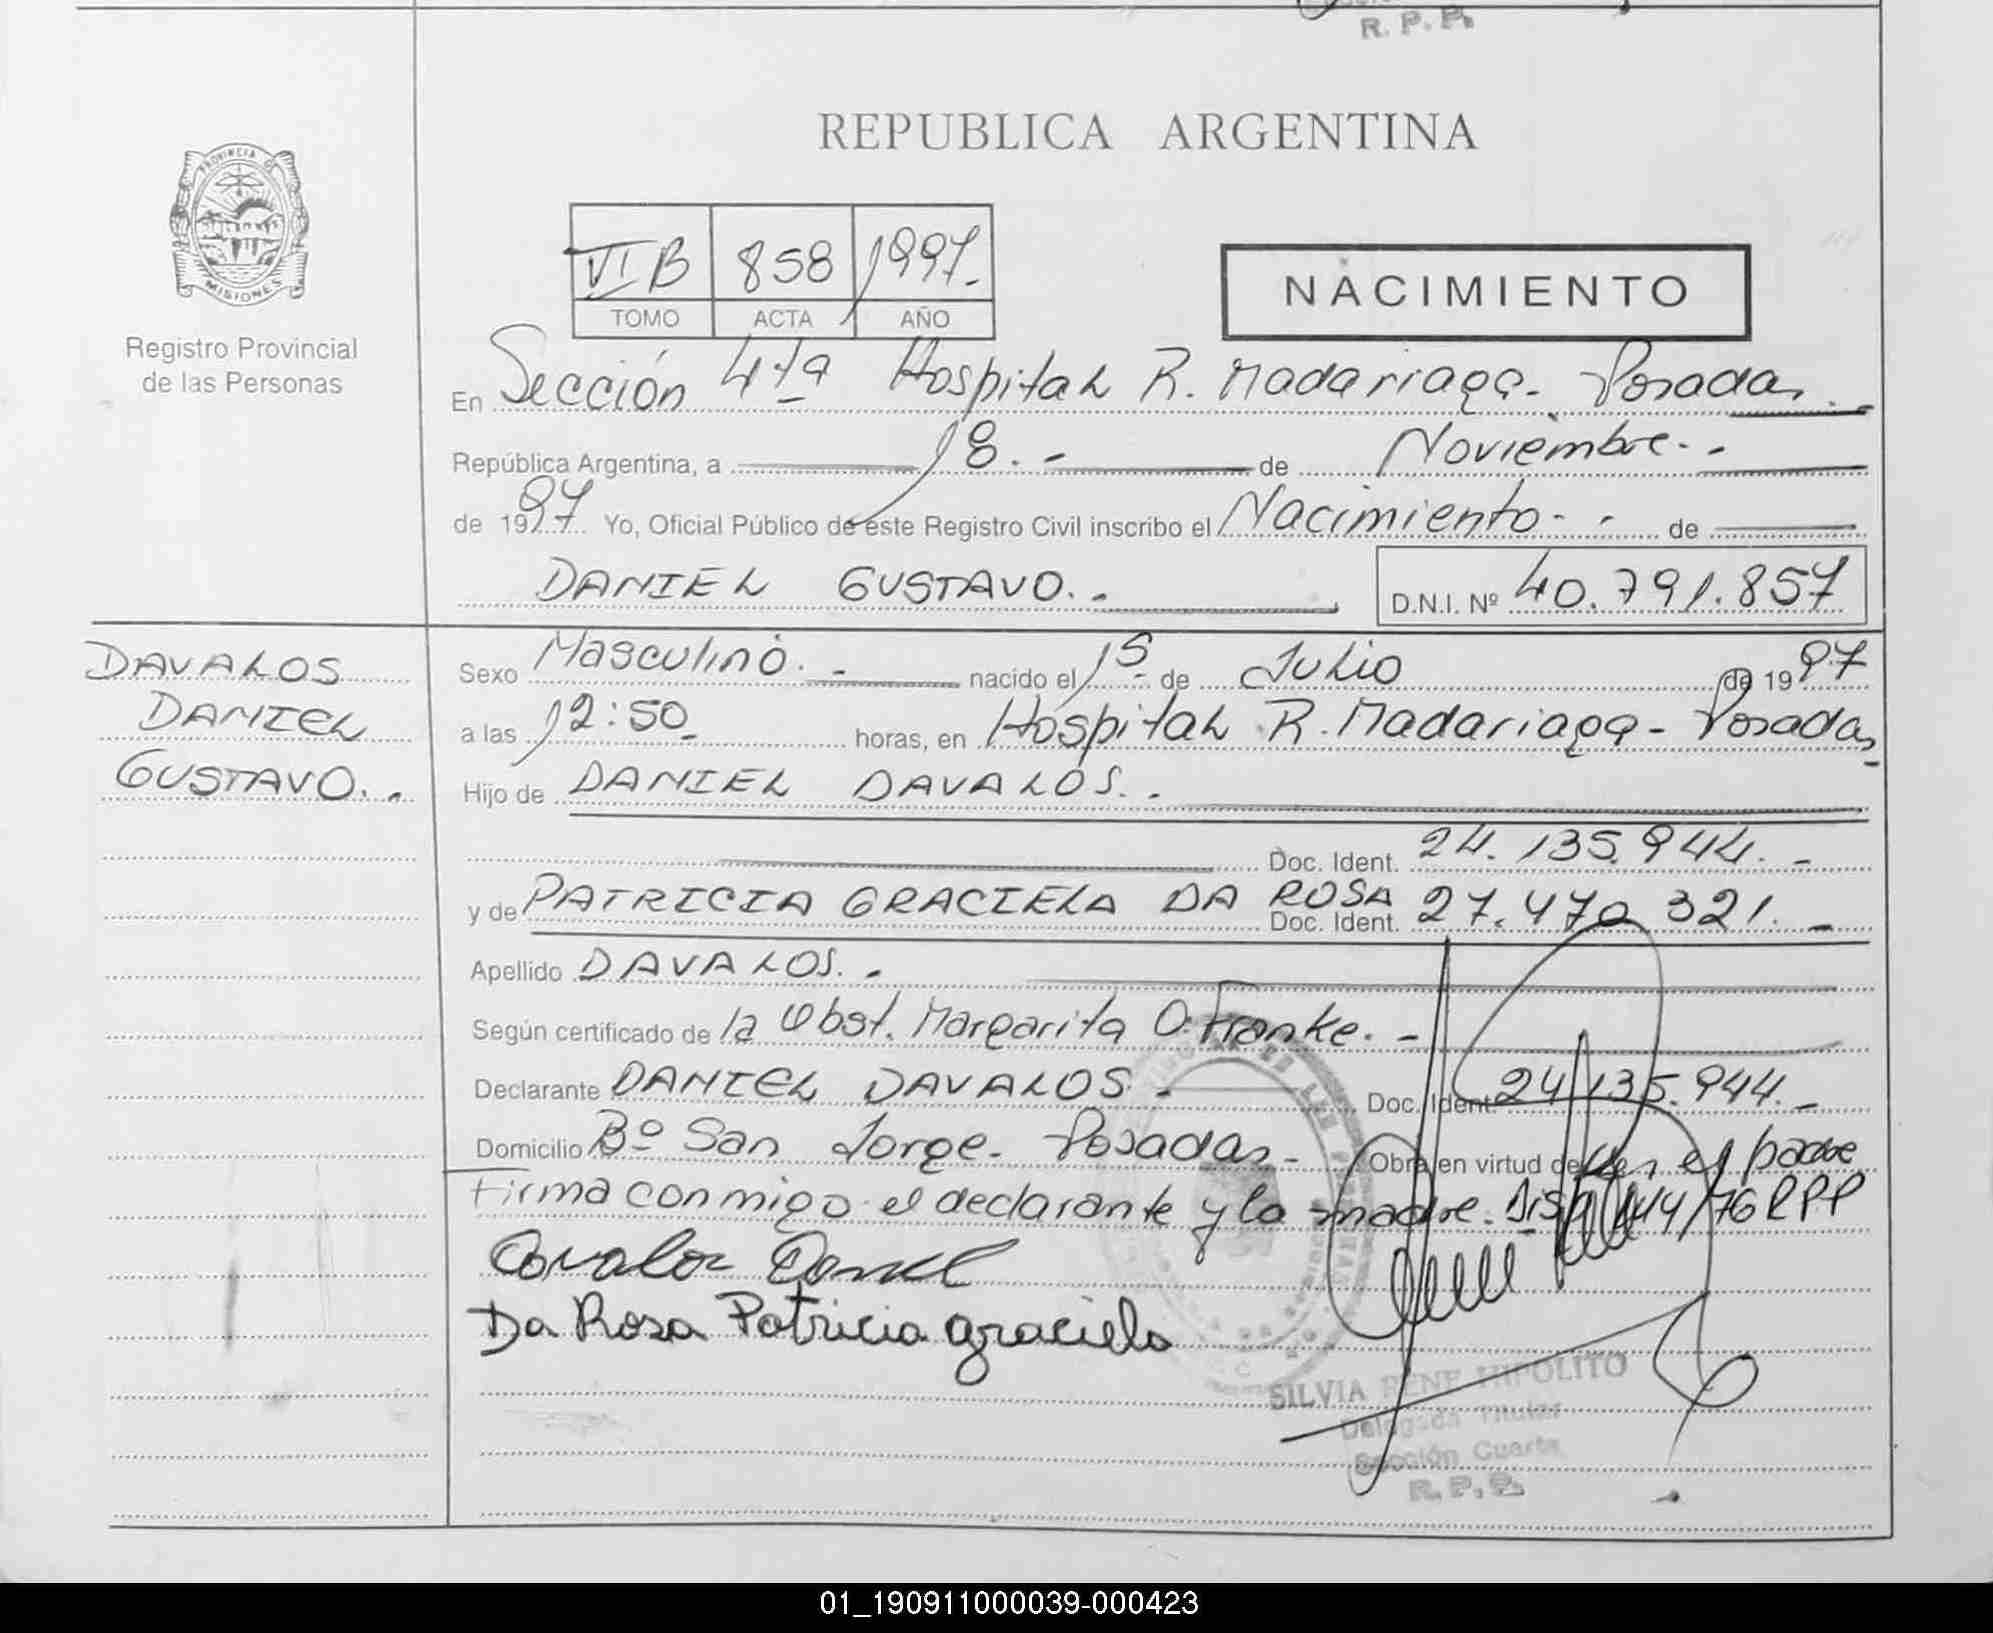 R. P. P.
REPUBLICA ARGENTINA
PROVINCIA DE
MISIONES
Registro Provincial
de las Personas
VI B 858 1997.-
TOMO ACTA AÑO
NACIMIENTO
En Sección 4ta Hospital R. Madariaga - Posadas.-
República Argentina, a 18.- de Noviembre.-
de 1997 Yo, Oficial Público de este Registro Civil inscribo el Nacimiento - - de
DANIEL GUSTAVO.- D.N.I. Nº 40.791.857
DAVALOS
DANIEL
GUSTAVO.-
Sexo Masculino.- nacido el 15 de Julio de 1997
a las 12:50 horas, en Hospital R. Madariaga - Posadas
Hijo de DANIEL DAVALOS.-
Doc. Ident. 24.135.944.-
y de PATRICIA GRACIELA DA ROSA Doc. Ident. 27.470.321.-
Apellido DAVALOS.-
Según certificado de la Obst. Margarita O. Franke.-
Declarante DANIEL DAVALOS.- Doc. Ident. 24.135.944.-
Domicilio Bº San Jorge - Posadas.- Obra en virtud de ser el padre
Firma conmigo el declarante y la madre. Disp. 144/76 RPP
Davalos Daniel
Da Rosa Patricia Graciela
SILVIA RENE HIPOLITO
Delegada Titular
Sección Cuarta
R. P. P.
01_190911000039-000423